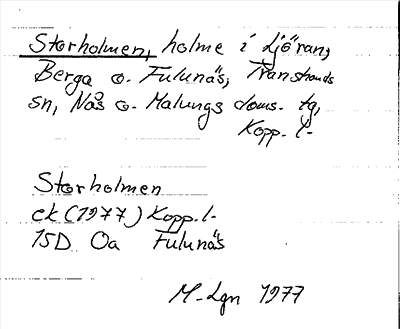 Storholmen, holme i Ljöran,
Berga o. Fulunäs, Transtrands
sn, Nås o. Malungs doms. tg,
Kopp. l-
Storholmen
ek (1977) Kopp. l-
15D Oa Fulunäs
M-Lgn 1977